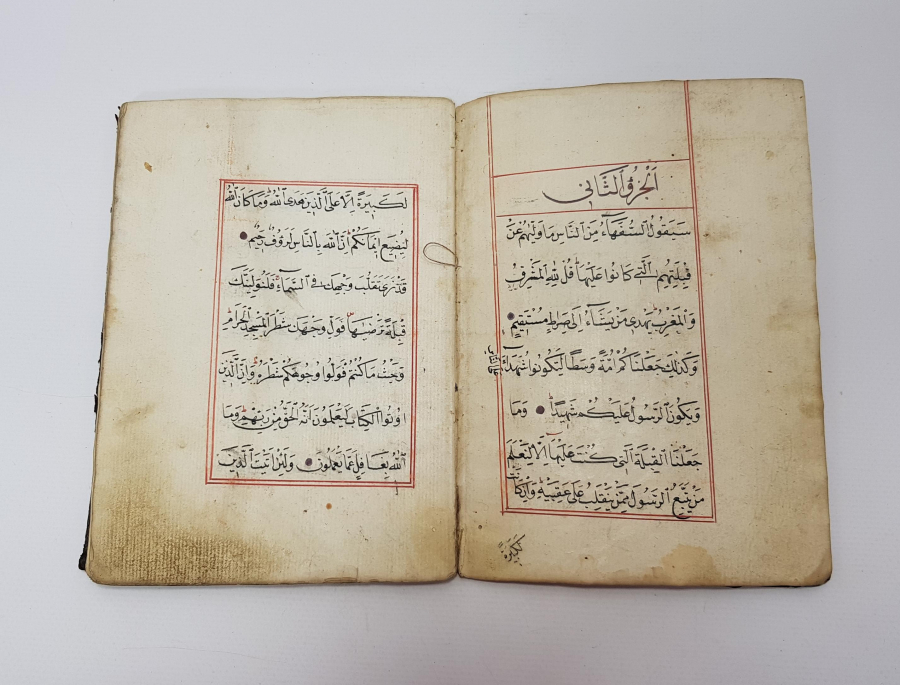 اَلْجُزْؤُ الثَّانِي
سَيَقُولُ السُّفَهَاءُ مِنَ النَّاسِ مَا وَلّٰيهُمْ عَنْ
قِبْلَتِهِمُ الَّتِي كَانُوا عَلَيْهَا قُلْ لِلّٰهِ الْمَشْرِقُ
وَالْمَغْرِبُ يَهْدِي مَنْ يَشَاءُ اِلٰى صِرَاطٍ مُسْتَقِيمٍ
وَكَذٰلِكَ جَعَلْنَاكُمْ اُمَّةً وَسَطًا لِتَكُونُوا شُهَدَاءَ
عَلَى النَّاسِ
وَيَكُونَ الرَّسُولُ عَلَيْكُمْ شَهِيدًا وَمَا
جَعَلْنَا الْقِبْلَةَ الَّتِي كُنْتَ عَلَيْهَا اِلَّا لِنَعْلَمَ
مَنْ يَتَّبِعُ الرَّسُولَ مِمَّنْ يَنْقَلِبُ عَلٰى عَقِبَيْهِ وَاِنْ كَانَتْ
لَكَبِيرَةً
لَكَبِيرَةً اِلَّا عَلَى الَّذِينَ هَدَى اللّٰهُ وَمَا كَانَ اللّٰهُ
لِيُضِيعَ اِيمَانَكُمْ اِنَّ اللّٰهَ بِالنَّاسِ لَرَؤُفٌ رَحِيمٌ
قَدْ نَرٰى تَقَلُّبَ وَجْهِكَ فِي السَّمَاءِ فَلَنُوَلِّيَنَّكَ
قِبْلَةً تَرْضٰيهَا فَوَلِّ وَجْهَكَ شَطْرَ الْمَسْجِدِ الْحَرَامِ
وَحَيْثُ مَا كُنْتُمْ فَوَلُّوا وُجُوهَكُمْ شَطْرَهُ وَاِنَّ الَّذِينَ
اُوتُوا الْكِتَابَ لَيَعْلَمُونَ اَنَّهُ الْحَقُّ مِنْ رَبِّهِمْ وَمَا
اللّٰهُ بِغَافِلٍ عَمَّا يَعْمَلُونَ وَلَئِنْ اَتَيْتَ الَّذِينَ